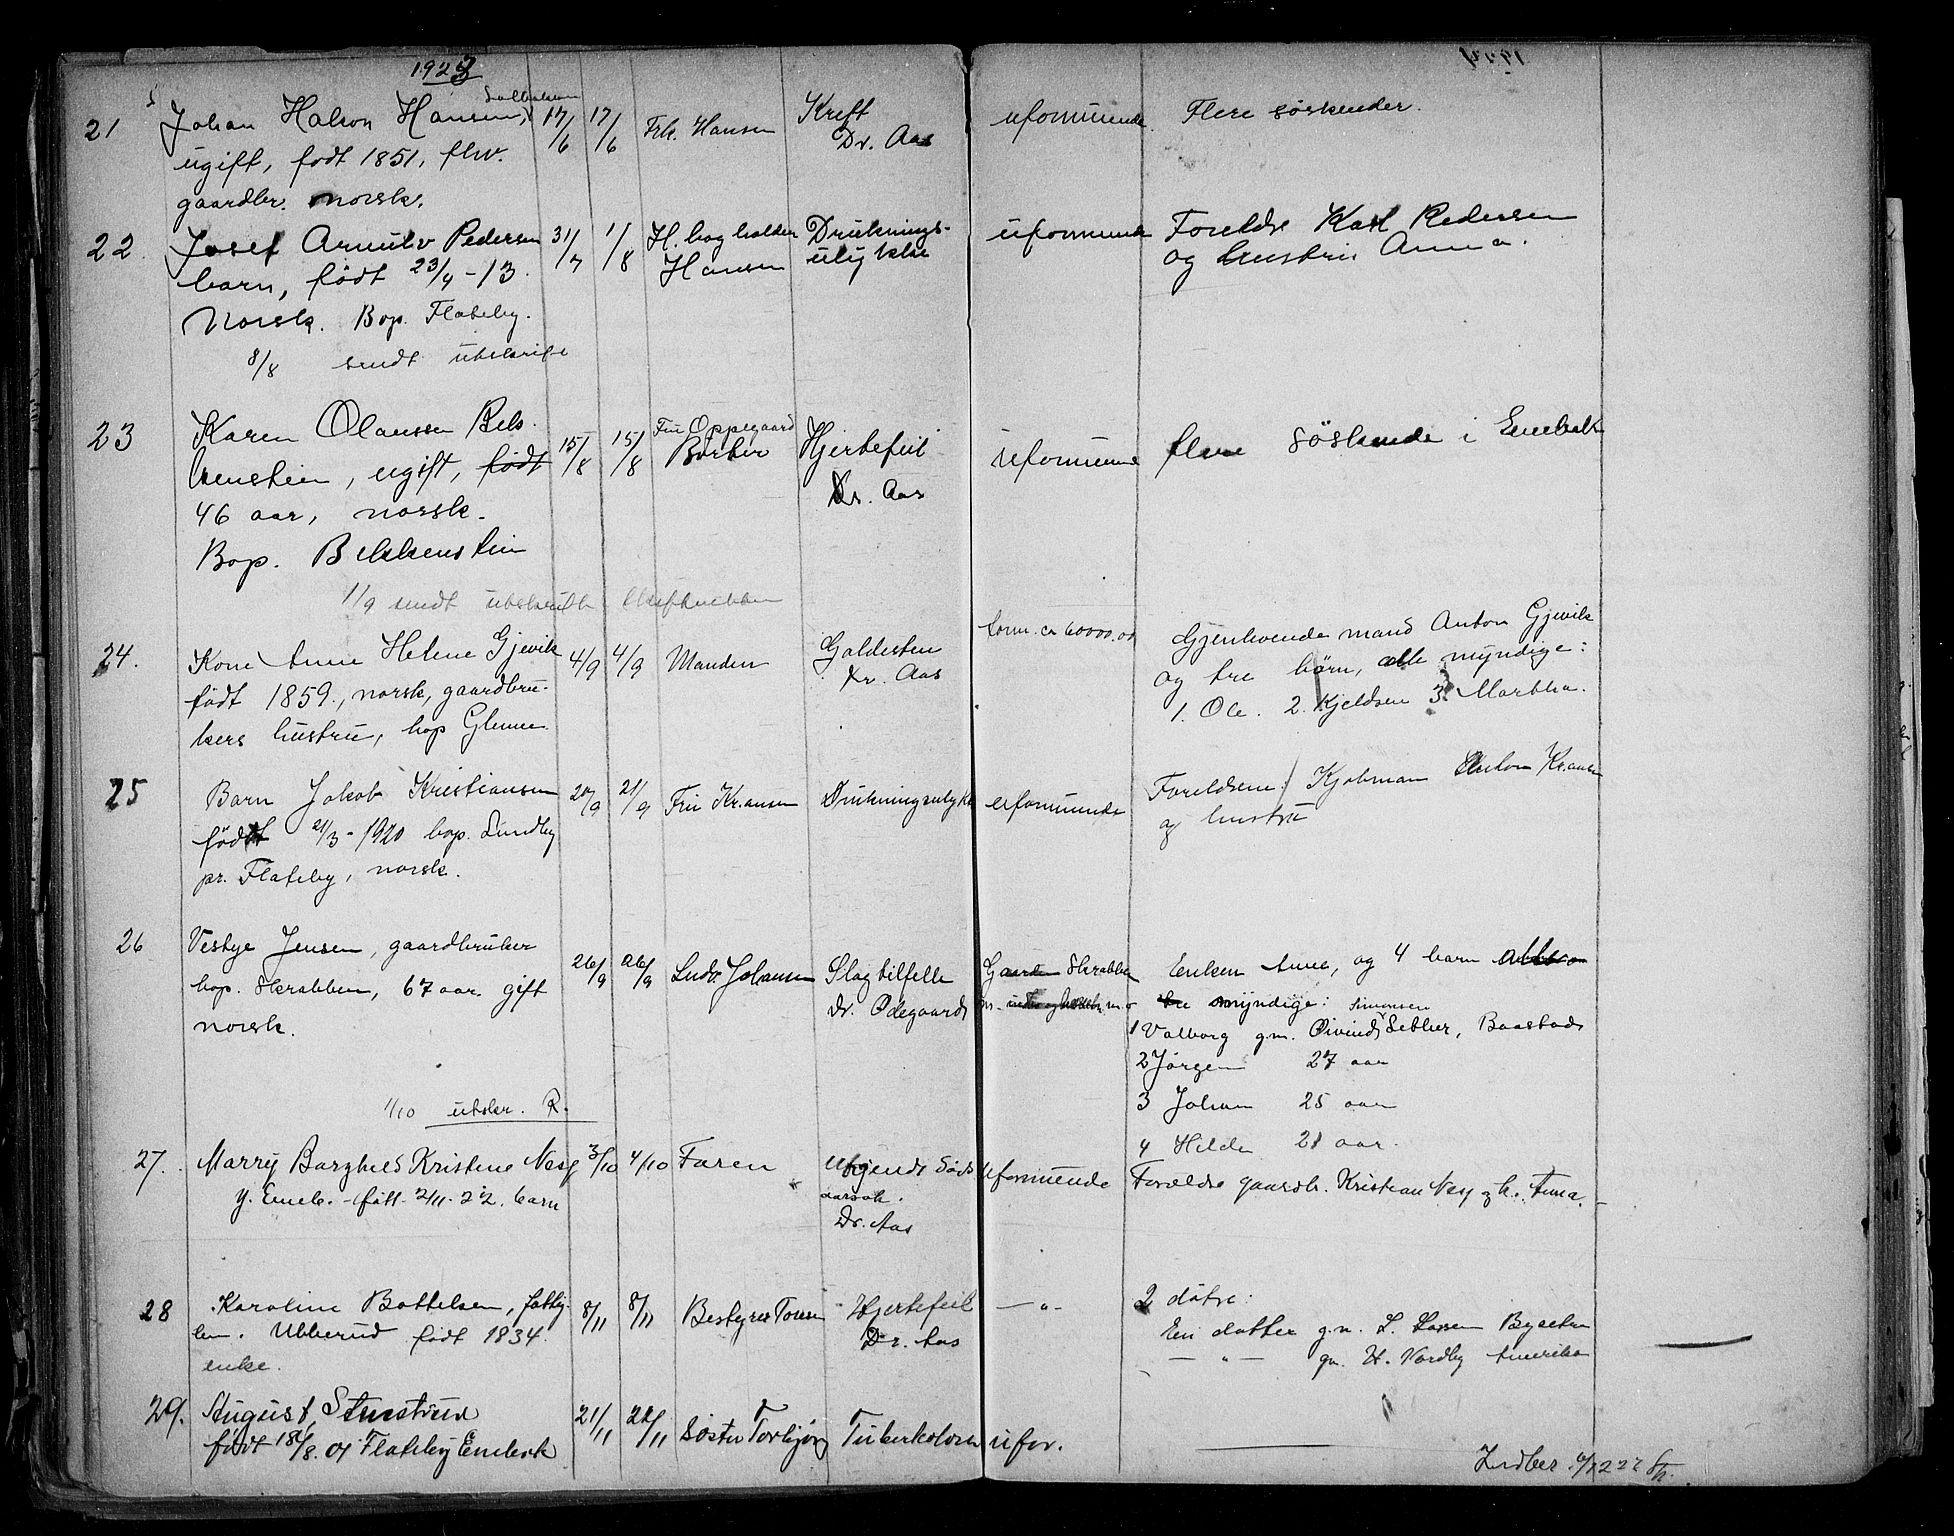 1923
21 Johan Halvor Hansen, 17/6 17/6 Frk. Hansen Kreft uformuende. Flere søskender.
ugift, født 1851, fhv. Dr. Aas
gaardbr. norsk.
22. Josef Arnulv Pedersen 31/7 1/8 H. bogholder Druknings- uformuende Foreldre Karl Pedersen
barn, født 23/4-13. Hansen ulykke og hustru Anna.
Norsk. Bop. Flateby.
8/8 sendt utskrift
23 Karen Olaussen Bek- 15/8 15/8 Fru Oppegaard Hjertefeil uformuende flere søskende i Enebak
kenstein, ugift, født Dr. Aas
46 aar, norsk.
Bop. Bekkenstein
1/9 sendt utskrift skifteretten
24. Kone Anne Helene Gjevik 4/9 4/9 Manden Galdesten form. ca 60000.00 Gjenlevende mand Anton Gjevik
født 1859, norsk, gaardbru- Dr. Aas og tre børn, alle myndige:
kers hustru, bop Glenne 1. Ole. 2. Kjeldsen 3. Martha.
25 Barn Jakob Kristiansen 20/9 21/9 Fru Kr.ansen Drukningsulykke uformuende Foreldrene: Kjøbmann Anton Kr.ansen
født 21/3-1920 bop. Lundby og hustru
pr. Flateby, norsk.
26 Vestye Jensen, gaardbruker 26/9 26/9 Ludv. Johansen Slagtilfelle Gaarden Skrabben Enken Anne, og 4 barn
bop. Skrabben, 67 aar. gift Dr. Ødegaard myndige:
norsk. 1 Valborg g.m. Øivind Simonsen Sether, Baastad
2 Jørgen 27 aar
3 Johan 25 aar
1/10 utskr. R.
4 Hilda 21 aar.
27. Marry Borghild Kristine Nesj 3/10 4/10 Faren Ukjendt døds uformuende Forældre gaardb. Kristian Nesj og h. Anna.
y. Eneb. - født 2/11-22. barn aarsak.
Dr. Aas
28 Karoline Bottelsen, fattig- 8/11 8/11 Bestyrer Toresen Hjertefeil — " — 2 døtre:
lem. Ubberud født 1834. Dr. Aas En datter g.m. L. Larsen Bysetra
enke. — " — gm. H. Nordby Amerika
29. August Stenstrud 21/11 22/11 Søster Torbjørg Tuberkolose ufor.
født 18/8. 01 Flateby Enebak
Indber. 6/12 22